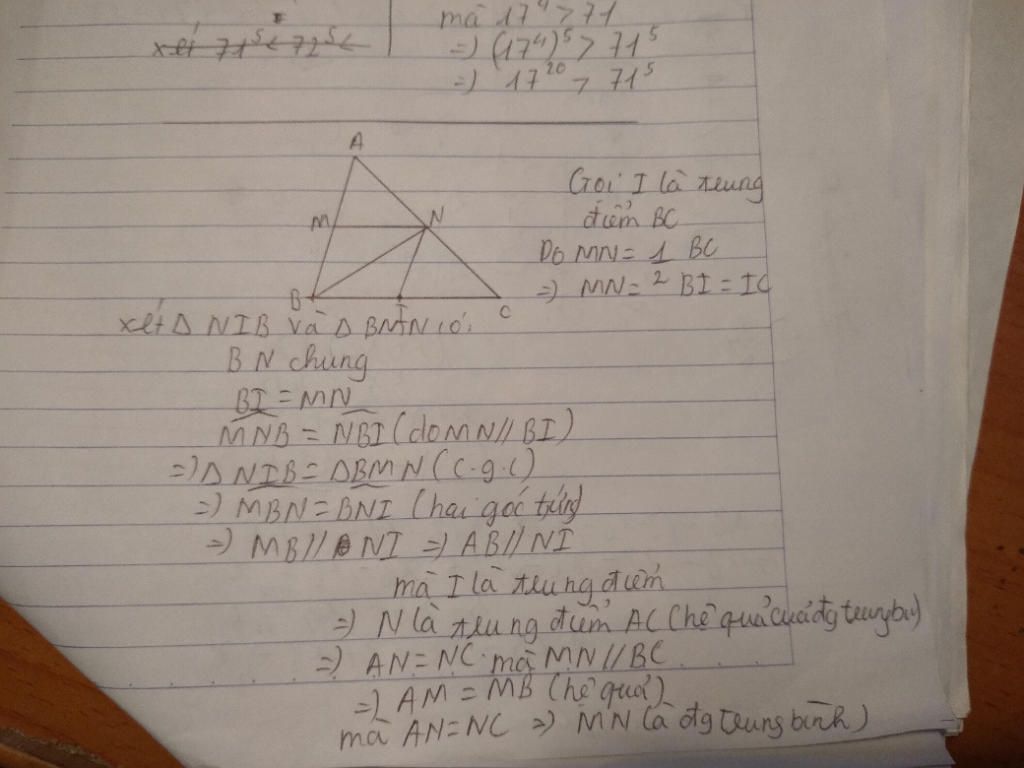 xét 71⁵ < 72⁵ <
mà 17⁴ > 71
=) (17⁴)⁵ > 71⁵
=) 17²⁰ > 71⁵
A
M N
B I C
Gọi I là trung
điểm BC
Do MN = 1/2 BC
=) MN = BI = IC
xét Δ NIB và Δ BMN có:
BN chung
BI = MN
MNB = NBI (do MN // BI)
=) Δ NIB = Δ BMN (c.g.c)
=) MBN = BNI (hai góc tứng)
=) MB // NI =) AB // NI
mà I là trung điểm
=) N là trung điểm AC (hệ quả của đg trung bì)
=) AN = NC mà MN // BC
=) AM = MB (hệ quả)
mà AN = NC =) MN là đg trung bình)